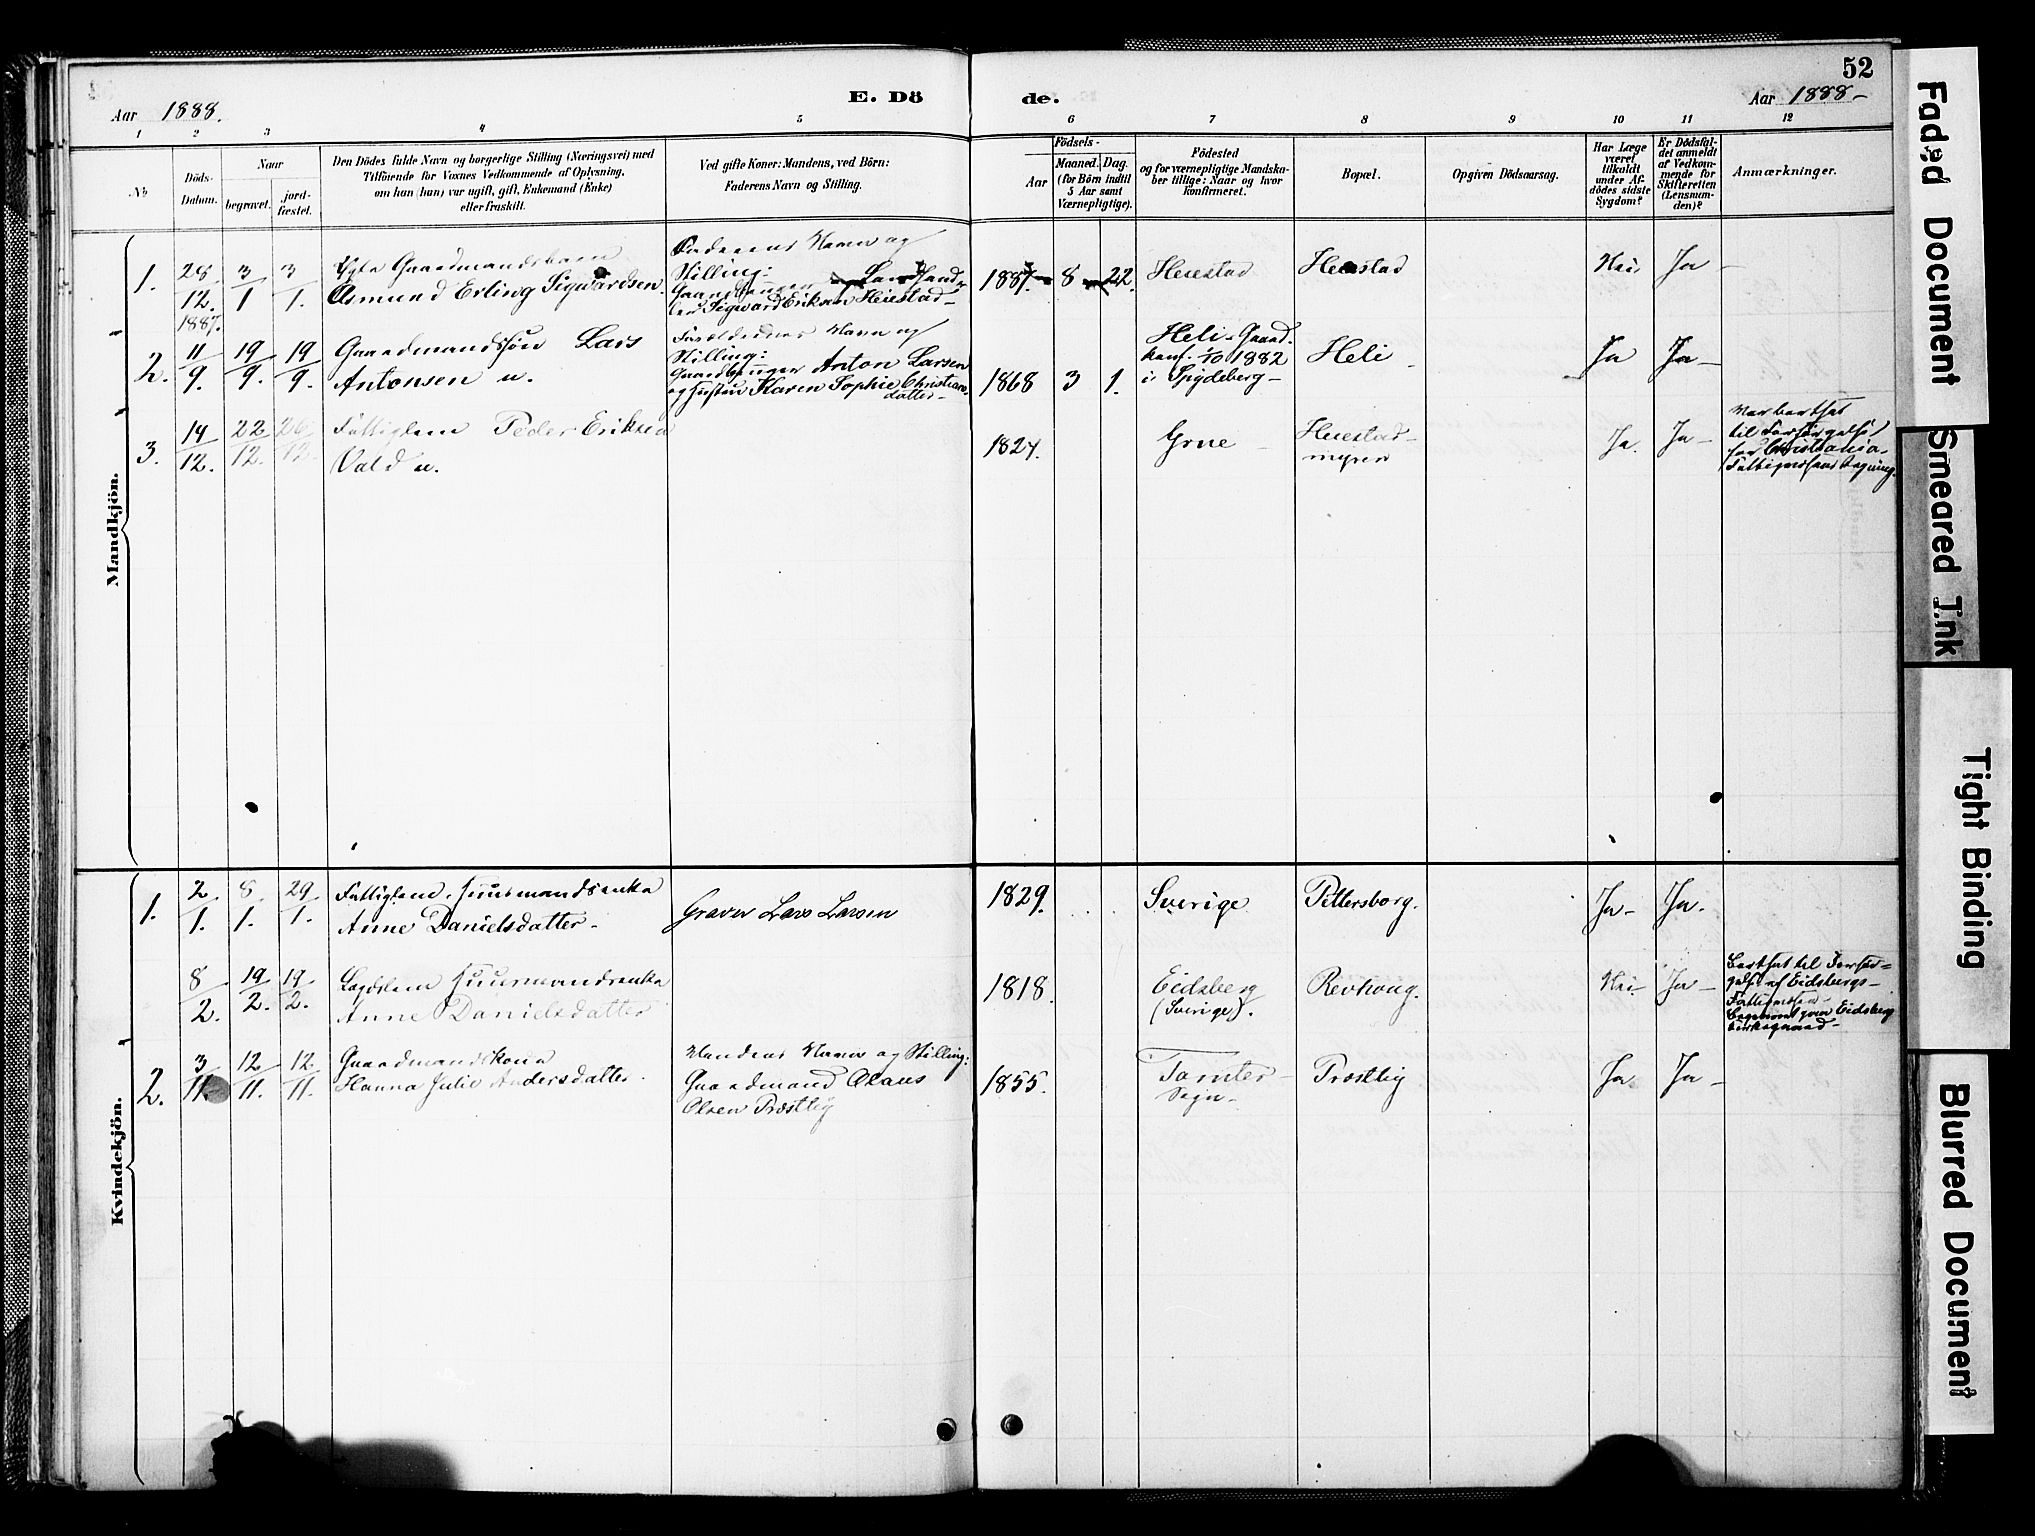 52
Aar 1888.
E. Dö
de.
Aar 1888-
1 2 3 4 5 6 7 8 9 10 11 12
No
Döds-
Datum.
Naar
begravet.
jord-
fæstet.
Den Dödes fulde Navn og borgerlige Stilling (Næringsvei) med
Tilföiende for Voxnes Vedkommende af Oplysning,
om han (hun) var ugift, gift, Enkemand (Enke)
eller fraskilt.
Ved gifte Koner: Mandens, ved Börn:
Faderens Navn og Stilling.
Födsels-
Aar
Maaned. Dag.
(for Börn indtil
5 Aar samt
Værnepligtige).
Födested
og for værnepligtige Mandska-
ber tillige: Naar og hvor
konfirmeret.
Bopæl.
Opgiven Dödsaarsag.
Har Læge
været
tilkaldt
under Af-
dödes sidste
Sygdom?
Er Dödsfal-
det anmeldt
af Vedkom-
mende for
Skifteretten
(Lensman-
den)?
Anmærkninger.
Mandkjön.
1. 28/12. 1887. 3/1 3/1.
Ægte Gaardmandsbarn
Asmund Erling Sigwardsen.
Faderens Navn og
Stilling:
Gaardbruger Landhand-
ler Sigward Eriksen Heiestad-
1887 8 22. Heiestad Heiestad Nei Ja -
2. 11/9. 19/9. 19/9.
Gaardmandssøn Lars
Antonsen u.
Forældrenes Navn og
Stilling:
Gaardbruger Anton Larsen
og Hustru Karen Sophie Christians-
datter-
1868 3 1.
Heli-Gaard.
konf. 1/10 1882
i Spydeberg-
Heli - Ja Ja-
3. 14/12. 22/12. 26/12.
Fattiglem Peder Eriksen
Vald u.
1824. Grne - Heiestad-
myren
Ja. Ja-
Var bortsat
til Forsørgelse
for Christiania-
Fattigvæsens Regning.
Kvindekjön.
1. 2/1. 8/1. 29/1.
Fattiglem, Huusmandsenke
Anne Danielsdatter-
Graver Lars Larsen
1829. Sverige Pettersborg. Ja- Ja.
8/2. 19/2. 19/2.
Lægdslem Huusmandsenke
Anne Danielsdatter
1818. Eidsberg
(Sverige).
Revhoug. Nei Ja-
Bortsat til Forsør-
gelse af Eidsbergs-
Fattigvæsen-
Begravet paa Eidsberg
kirkegaard-
2. 3/11. 12/11. 12/11.
Gaardmandskone
Hanna Julie Andersdatter.
Mandens Navn og Stilling:
Gaardmand Olaus
Olsen Præstby
1855. Tomter-
Sogn-
Præstby Ja Ja -
Faded Document
Smeared Ink
Tight Binding
Blurred Document